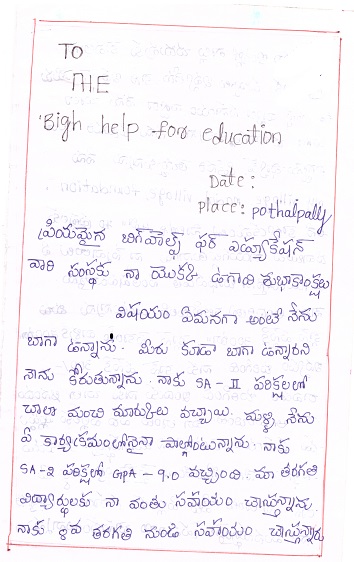 TO
THE
'Bigh help for education
Date:
place: pothalpally
ప్రియమైన బిగ్‌హెల్ప్ ఫర్ ఎడ్యూకేషన్
వారి సంస్థకు నా యొక్క ఉగాది శుభాకాంక్షలు
విషయం ఏమనగా అంటే నేను
బాగా ఉన్నాను. మీరు కూడా బాగా ఉన్నారని
నాను కోరుతున్నాను. నాకు SA-II పరిక్షలలో
చాలా మంచి మార్కులు వచ్చాయి. మళ్ళి నేను
ఏ కార్యక్రమంలోనైనా పాల్గోంటున్నాను. నాకు
SA-2 పరిక్షలో GPA-9.0 వచ్చింది. మా తరగతి
విద్యార్థులకు నా వంతు సహాయం చేస్తున్నాను.
నాకు 8వ తరగతి నుండి సహాయం చేస్తున్నారు